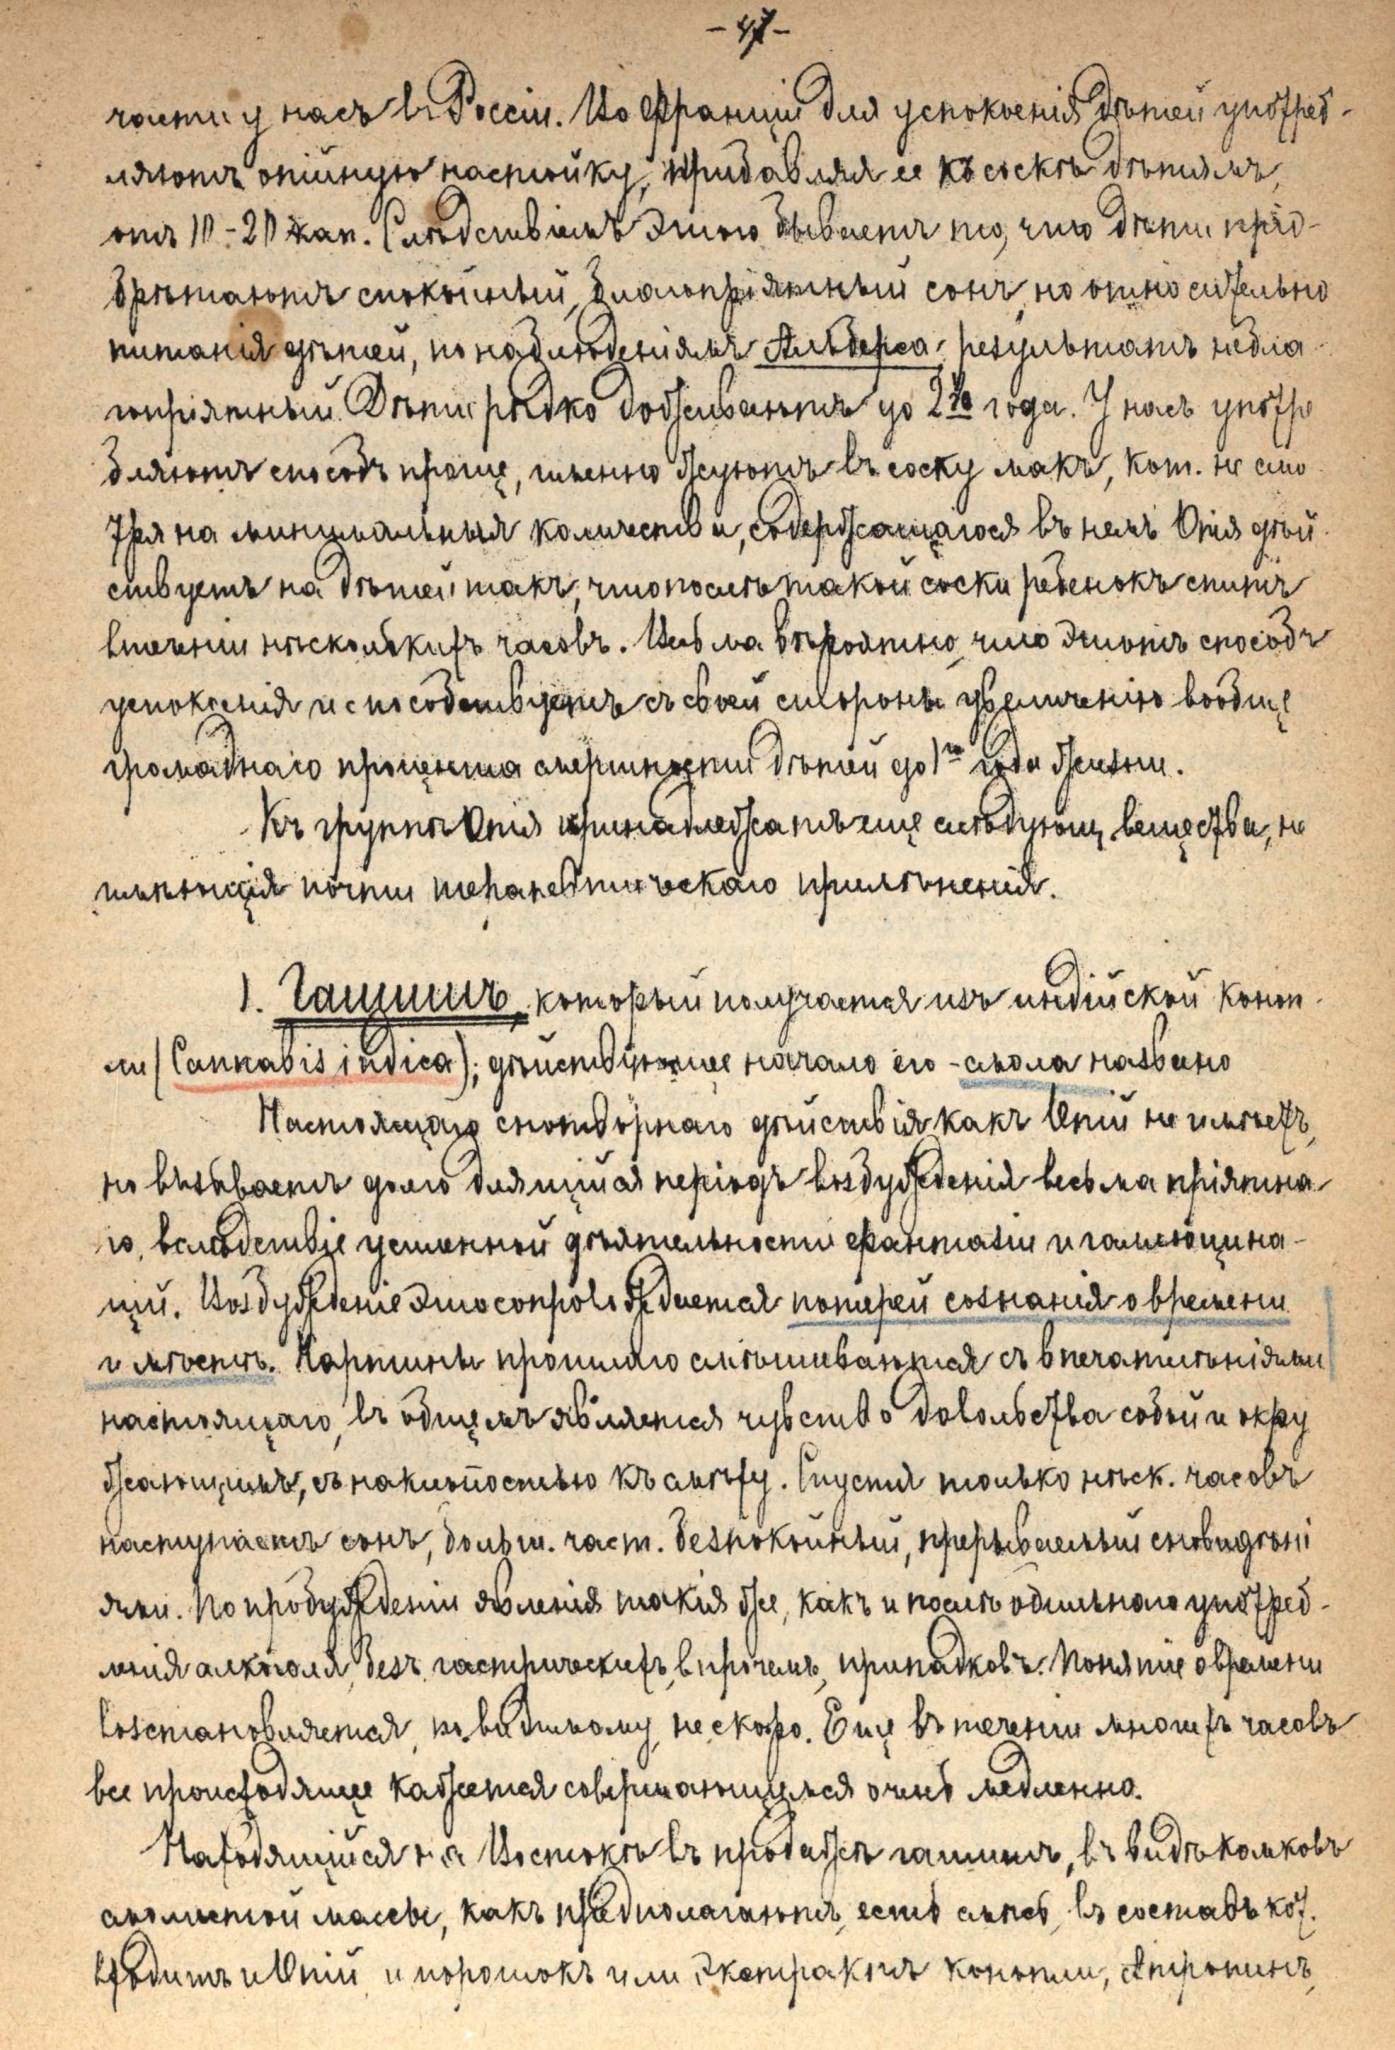 - 47 -
части у насъ въ Россіи. Во Франціи для успокоенія дѣтей употреб-
ляютъ опійную настойку, прибавляя ее къ соскѣ дѣтямъ,
отъ 10-20 кап. Слѣдствіемъ этого бываетъ то, что дѣти пріо-
брѣтаютъ спокойный, благопріятный сонъ, но относительно
питанія дѣтей, по наблюденіямъ Альберса, результатъ небла-
гопріятный. Дѣти рѣдко доживаютъ до 2 года. У насъ употре
бляютъ способъ проще, именно жуютъ въ соску макъ, кот. не смо
тря на минимальныя количества, содержащагося въ немъ Опія дѣй
ствуетъ на дѣтей такъ, что послѣ такой соски ребенокъ спитъ
втеченіи нѣсколькихъ часовъ. Весьма вѣроятно, что этотъ способъ
успокоенія и способствуетъ съ своей стороны увеличенію вообще
громаднаго процента смертности дѣтей до 1го года жизни.
Къ группѣ Опія принадлежатъ еще слѣдующ. вещества, не
имѣющія почти терапевтическаго примѣненія.
1. Гашишъ, который получается изъ индійской коноп-
ли (Cannabis indica); дѣйствующее начало его - смола названо
Настоящаго снотворнаго дѣйствія какъ Опій не имѣетъ,
но вызываетъ долго длящійся періодъ возбужденія весьма пріятна-
го, вслѣдствіе усиленной дѣятельности фантазіи и галлюцина-
цій. Возбужденіе это сопровождается потерей сознанія о времени
и мѣстѣ. Картины прошлаго смѣшиваются съ впечатлѣніями
настоящаго, въ общемъ является чувство довольства собой и окру
жающимъ, съ наклонностью къ смѣху. Спустя только нѣск. часовъ
наступаетъ сонъ, больш. част. безпокойный, прерываемый сновидѣні
ями. По пробужденіи явленія такія же, какъ и послѣ обильнаго употреб-
ленія алкоголя, безъ гастрическихъ, впрочемъ, припадковъ. Понятіе о времени
возстановляется, повидимому, не скоро. Еще въ теченіи многихъ часовъ
все происходящее кажется совершающимся очень медленно.
Находящійся на Востокѣ въ продажѣ гашишъ, въ видѣ комковъ
смолистой массы, какъ предполагаютъ, есть смѣсь, въ составъ кот.
входитъ и Опій и порошокъ или экстрактъ конопли, Атропинъ,